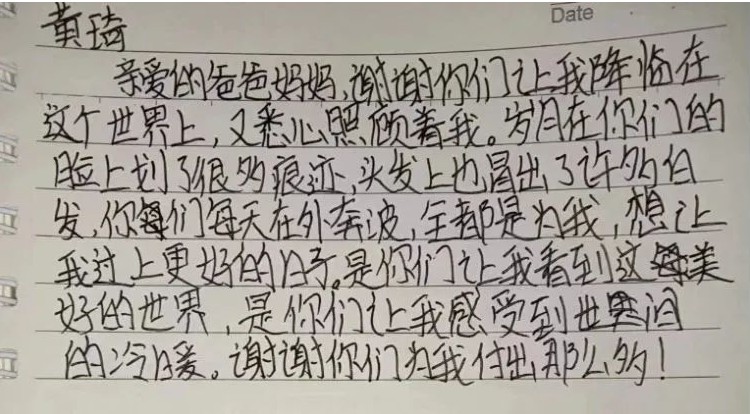 Date
黄琦
亲爱的爸爸妈妈,谢谢你们让我降临在
这个世界上,又悉心照顾着我。岁月在你们的
脸上划了很多痕迹,头发上也冒出了许多白
发,你们每天在外奔波,全都是为我,想让
我过上更好的日子。是你们让我看到这美
好的世界,是你们让我感受到世间
的冷暖。谢谢你们为我付出那么多!